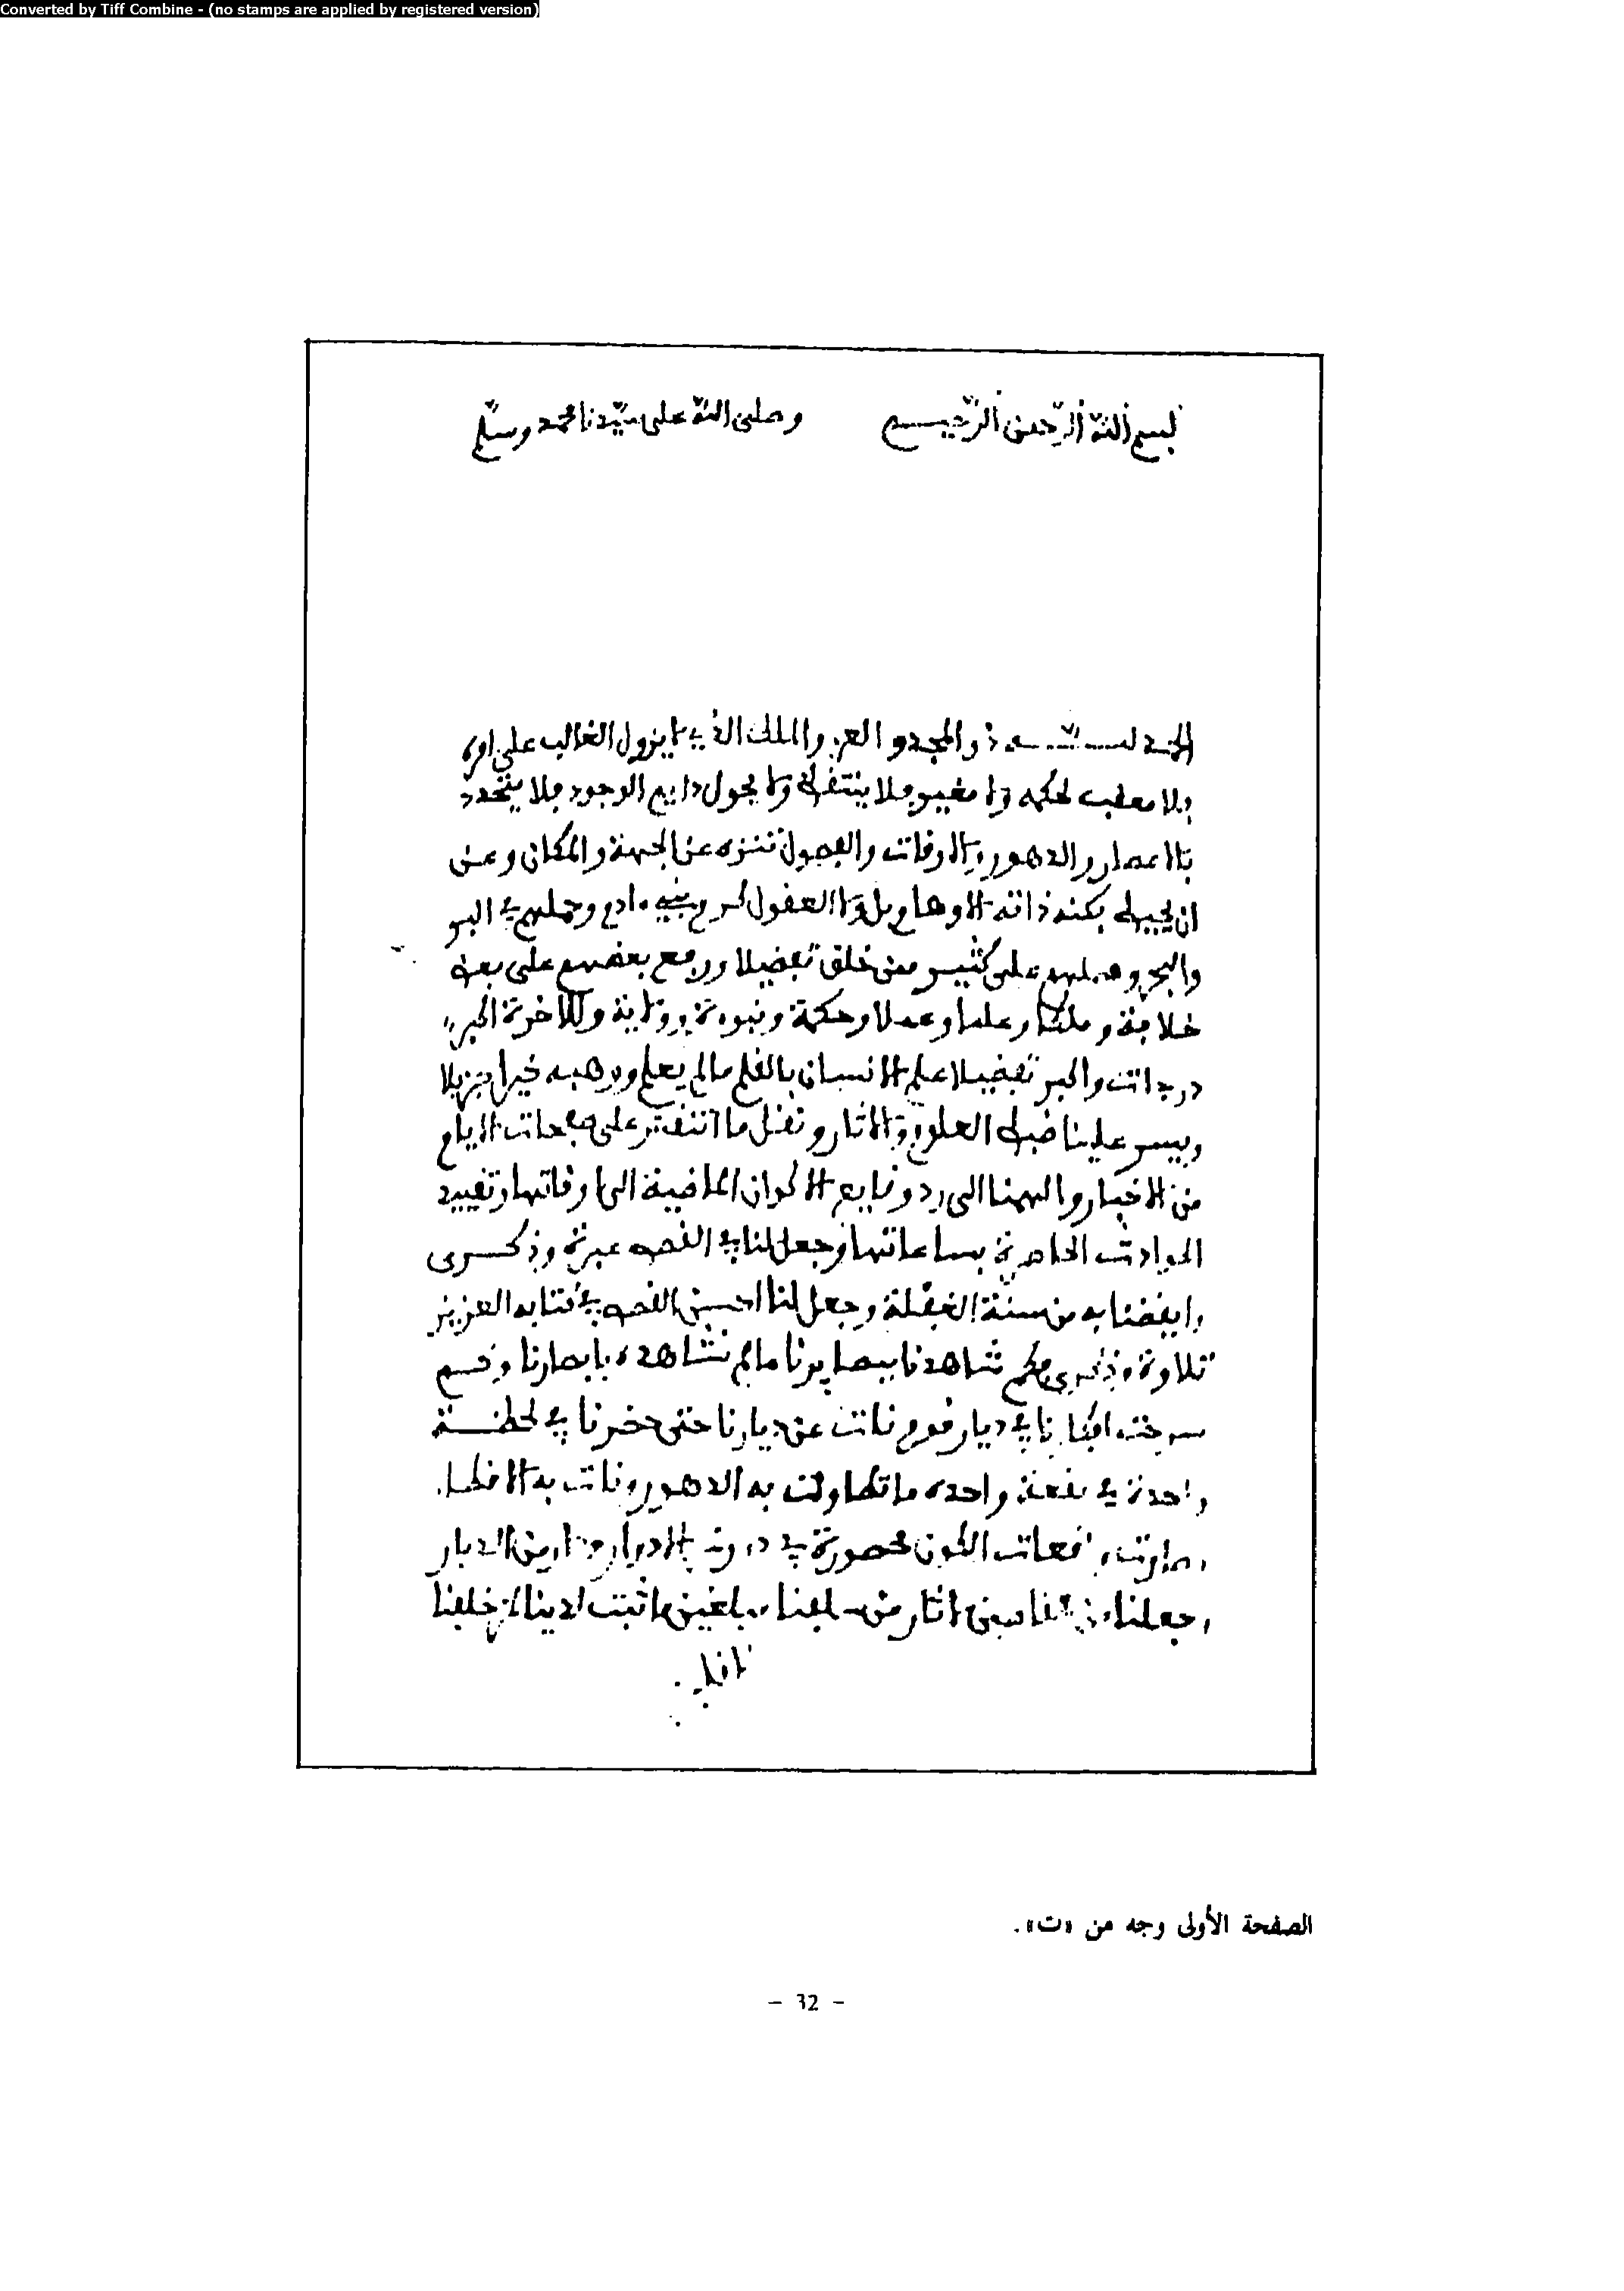 Converted by Tiff Combine - (no stamps are applied by registered version)
بسم الله الرحمن الرحيم وصلى الله على سيدنا محمد وسلم
الحمد لله ذو المجد والعز والملك الذي لا يزول الغالب على امره
فلا معقب لحكمه ولا مغير فلا ينتقل ولا يحول دايم الوجود فلا يتحدد
بالاعصار والدهور والاوقات والفصول تنزه عن الجهة والمكان وعن
ان يحيط بكنه ذاته الاوهام والعقول كرم بني ءادم وحملهم في البر
والبحر وفضلهم على كثير ممن خلق تفضيلا ورفع بعضهم على بعض
خلافة وملكا وعلما وعدلا وحكمة ونبوءة وولاية وللآخرة اكبر
درجات واكبر تفضيلا علم الانسان بالقلم ما لم يعلم ووهبه خيرا جزيلا
ويسر علينا ضبط العلوم والاثار ونقل ما انتقش على صفحات الايام
من الاخبار والهمنا الى رد وقايع الاكوان الماضية الى اوقاتها وتقييد
الحوادث الحاضرة بساعاتها وجعل لنا في القصص عبرة وذكرى
وايقضنا به من سنة الغفلة وجعل لنا احسن القصص في كتابه العزيز
تلاوة وذكرى فكم شاهدنا ببصايرنا ما لم نشاهده بابصارنا وكم
سرحت افكارنا في ديار قوم نات عن ديارنا حتى حضرنا في لحظة
واحدة في بقعة واحده ما تطاولت به الدهور ونات به الاقطار
وصارت بقعات الكون محصورة في الديار
وجعلنا اثار من سلفنا اثبت لدينا خلفنا
الصفحة الأولى وجه من «ت».
- 32 -